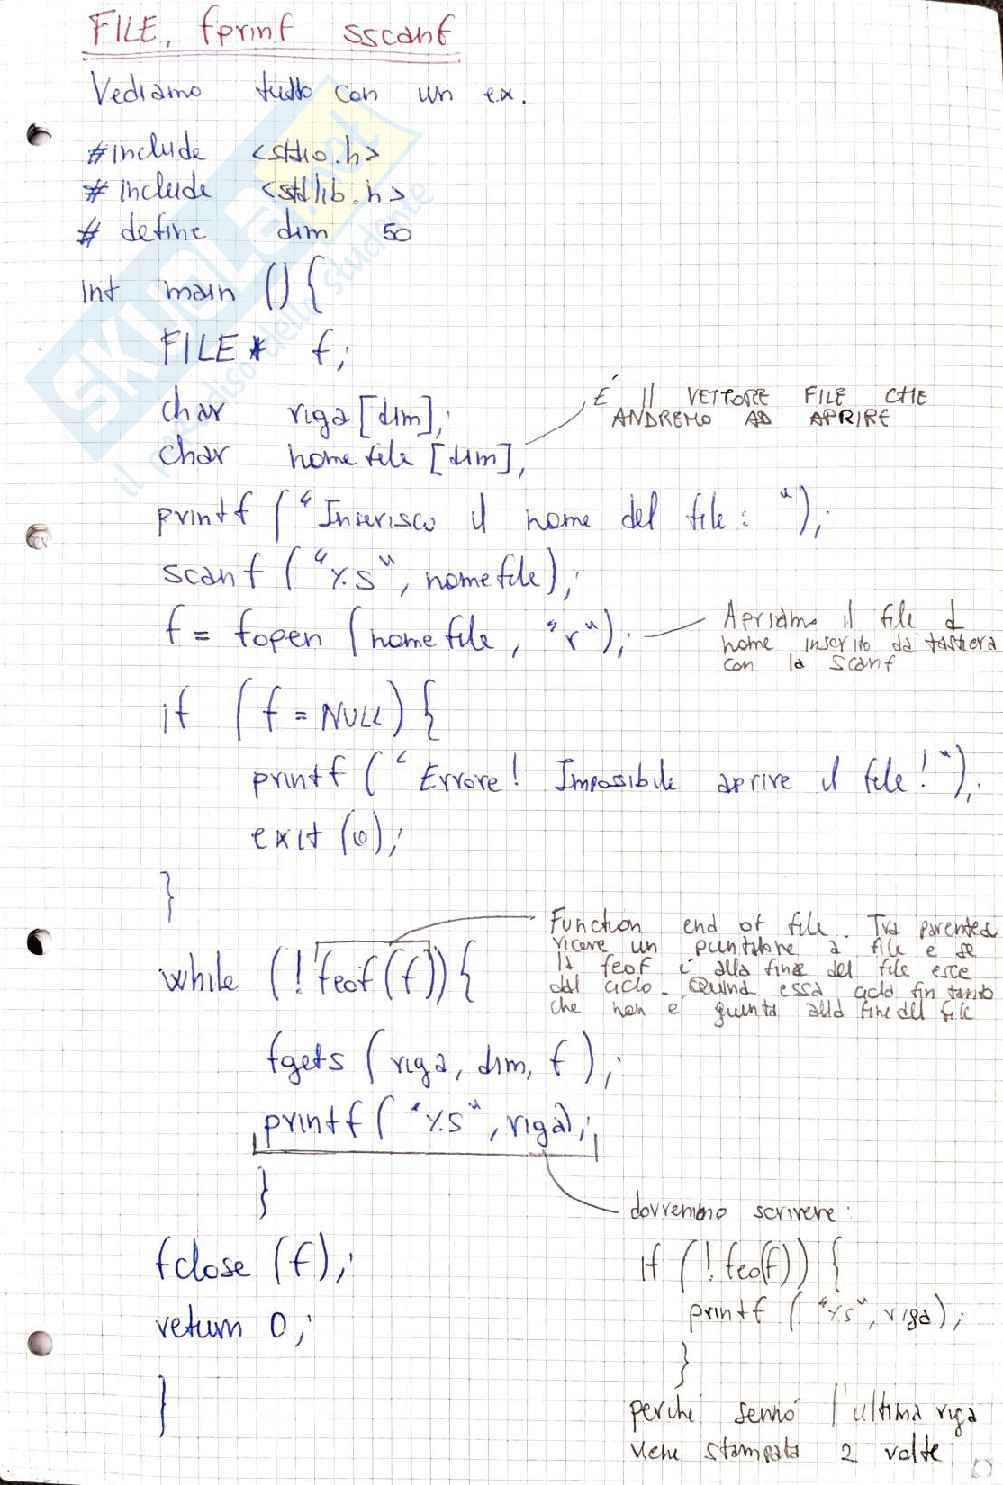 FILE, fprinf sscanf
Vediamo tutto con un ex.
#include <stdio.h>
# include <stdlib.h>
# define dim 50
int main () {
FILE* f;
char riga [dim];
char nomefile [dim];
È il VETTORE FILE CHE
ANDREMO AD APRIRE
printf ("Inserisco il nome del file: ");
scanf ("%s", nomefile);
f = fopen (nomefile, "r");
Apriamo il file d
nome inserito da tastiera
con la scanf
if (f = NULL) {
printf ("Errore! Impossibile aprire il file!");
exit (0);
}
while (! feof(f)) {
Function end of file. Tra parentesi
riceve un puntatore a file e se
la feof è alla fine del file esce
dal ciclo. Quindi essa cicla fin tanto
che non è giunta alla fine del file
fgets (riga, dim, f);
printf ("%s", riga);
}
dovremmo scrivere:
if (!feo(f)) {
printf ("%s", riga);
}
perchè sennò l'ultima riga
viene stampata 2 volte
fclose (f);
return 0;
}
SKUOLA.net
il paradiso dello studente